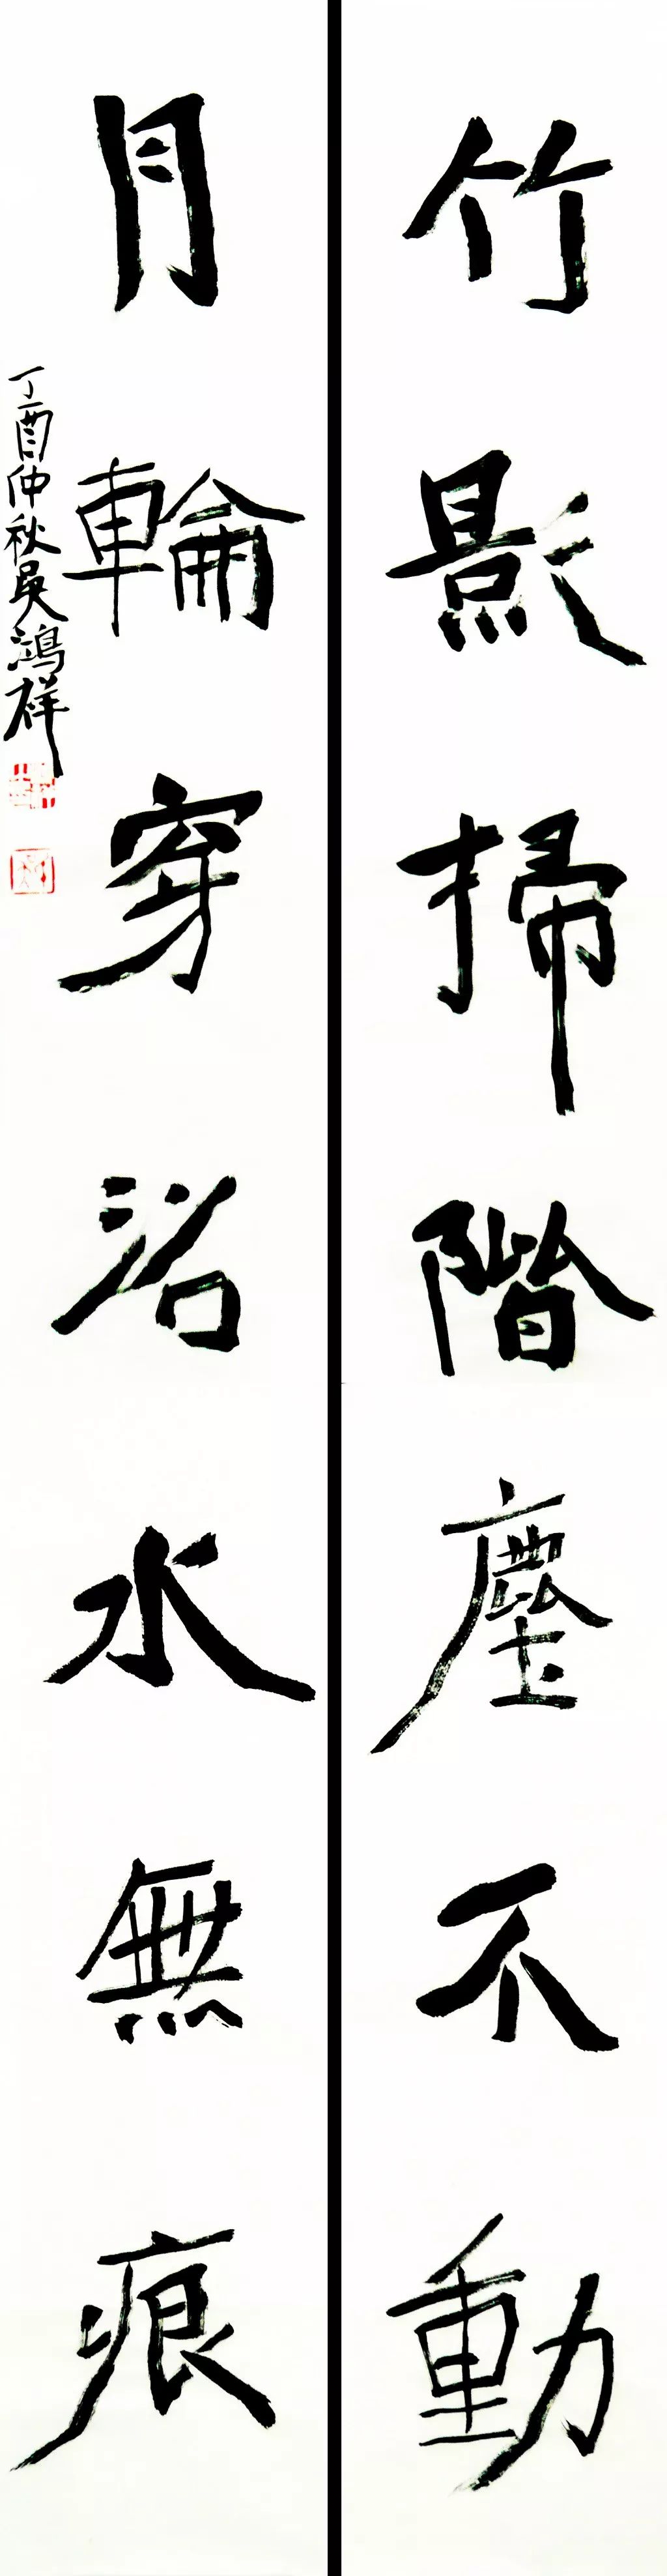 竹影掃階塵不動
月輪穿沼水無痕
丁酉仲秋吳鴻祥